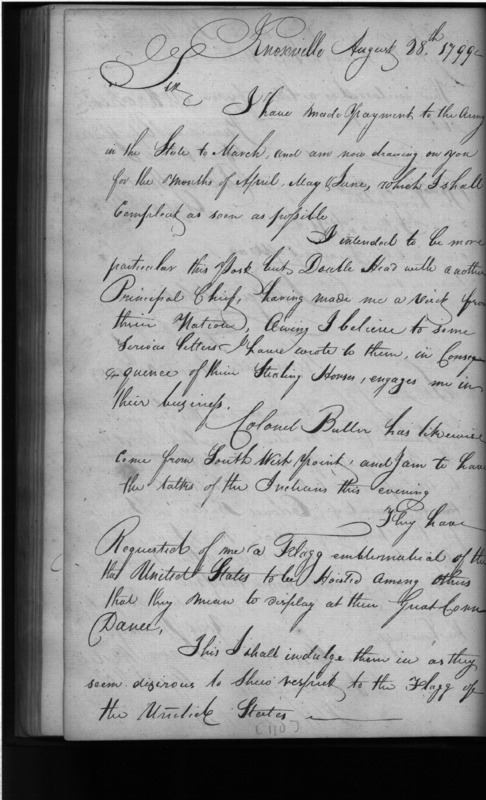 Knoxville August 28th 1799
Sir
I have made payment to the Army
in the State to March, and am now drawing on you
for the months of April, May & June, which I shall
Compleat as soon as possible
I intended to be more
particular this Post but Double Head with another
Principal Chief, having made me a visit from
their Nation, Owing I believe to some
Serious letters I have wrote to them, in Conse
quence of their Stealing Horses, engages me in
their business.
Colonel Butler has likewise
come from South West point, and I am to have
the talks of the Indians this evening
They have
Requested of me a Flagg emblematical of the
the United States to be Hoisted among others
that they mean to display at their Great Corn
Dance,
This I shall indulge them in as they
seem desirous to shew respect to the Flagg of
the United States
(110)